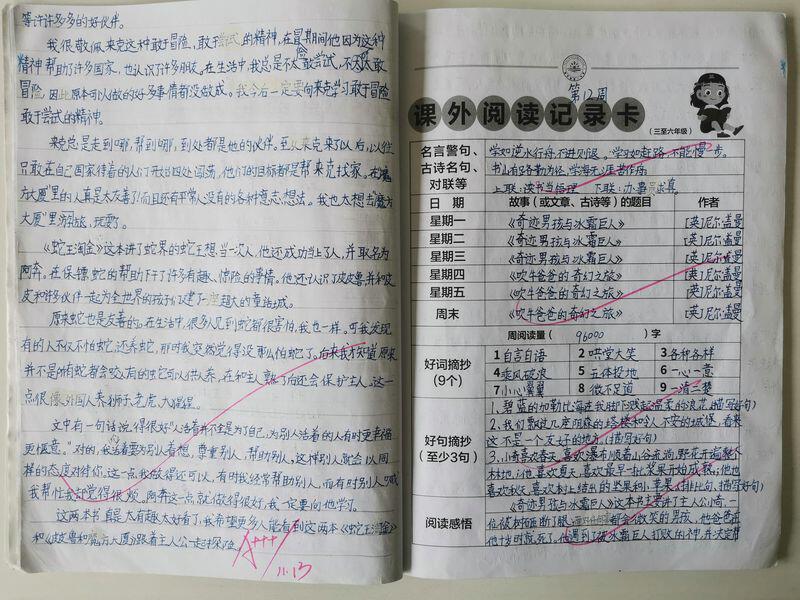 等许许多多的好伙伴。
我很敬佩来克这种敢于冒险,敢于尝试的精神,在冒险期间他因为这种
精神帮助了许多国家,也认识了许多朋友。在生活中,我总是不太敢尝试,不太敢
冒险,因此原本可以做的好多事情都没做成。我今后一定要向来克学习敢于冒险
敢于尝试的精神。
来克总是走到哪,帮到哪,到处都是他的伙伴。至从来克来了以后,以往
只敢在自己国家待着的人们开始四处闯荡,他们的目标都是帮来克找家。在《魔
方大厦》里的人真是太友善了!而且还有不常人没有的各种意志、想法。我也太想去《魔方
大厦》里游玩,玩耍。
《蛇王淘金》这本讲了蛇界的蛇王想当一次人,他还成功当上了人,并取名为
阿奔。在保镖蛇的帮助下干了许多有趣、惊险的事情。他还认识了皮皮鲁并和
皮和许多伙伴一起为全世界的孩子们建了一座超大的童话城。
原来蛇也是友善的。在生活中,很多人见到蛇都很害怕,我也一样。可我发现
有的人不仅不怕蛇,还养蛇,那时我突然觉得没那么怕蛇了。后来我才知道原来
并不是所有蛇都会咬人,有的蛇可以供人养,在和主人熟了后还会保护主人。这一
点很像外国人养狮子、老虎、大猩猩。
文中有一句话说得很好"人活着并不全是为了自己,为别人活着的人有时更幸福
更惬意。"对的,我活着要为别人着想,尊重别人,帮助别人,这样别人就会以同
样的态度对待你。这一点我做得还可以,有时我经常帮助别人,而有时别人叫
我帮忙我却觉得很烦。阿奔这一点就做得很好,我一定要向他学习。
这两本书真是太有趣太好看了,我希望更多人能看到这两本《蛇王淘金》
和《皮皮鲁和魔方大厦》跟着主人公一起探险。
A+++
11.13
第12周
课外阅读记录卡
(三至六年级)
名言警句、古诗名句、对联等
学如逆水行舟,不进则退。 学习如赶路,不能慢一步。
书山有路勤为径,学海无涯苦作舟。
上联:读书当明理 下联:办事
日 期 故事(或文章、古诗等)的题目 作者
星期一 《奇迹男孩与冰霜巨人》 [英]尼尔·盖曼
星期二 《奇迹男孩与冰霜巨人》 [英]尼尔·盖曼
星期三 《奇迹男孩与冰霜巨人》 [英]尼尔·盖曼
星期四 《吹牛爸爸的奇幻之旅》 [英]尼尔·盖曼
星期五 《吹牛爸爸的奇幻之旅》 [英]尼尔·盖曼
周末 《吹牛爸爸的奇幻之旅》 [英]尼尔·盖曼
周阅读量( 96000 )字
好词摘抄(9个)
1自言自语 2哄堂大笑 3各种各样
4乘风破浪 5五体投地 6一心一意
7小心翼翼 8微不足道 9一清二楚
好句摘抄(至少3句)
1、碧蓝的加勒比海在我脚下溅起温柔的浪花。(描写好句)
2、我们飘过几座阴森的塔楼和令人不安的城堡,看来
这不是一个友好的地方。(描写好句)
3、小奇喜欢春天,喜欢瀑布顺着山谷流淌,野花开遍整个
林地;他喜欢夏天,喜欢最早一批浆果开始成熟;他也
喜欢秋天,喜欢树上结出的坚果和小苹果。(排比句、描写好句)
阅读感悟
《奇迹男孩与冰霜巨人》这本书主要讲了主人公小奇,一
位被树砸断了腿,都会微笑的男孩,他爸爸在
他十岁时就死了,他遇到了被冰霜巨人打败的神,并决定帮